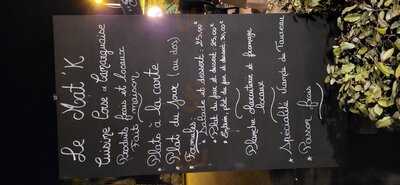 Le Mat'K
Cuisine Corse et Sartenaise
Produits frais et locaux
Fait maison
Plats à la carte
Plat du jour (au dos)
Formules:
* Salade et dessert: 25,00€
* Plat du jour et dessert 25,00€
* Entrée, plat du jour et dessert 30,00€
* Planche charcuterie et fromage
locaux
* Spécialité viande de Taureau
* Poisson frais